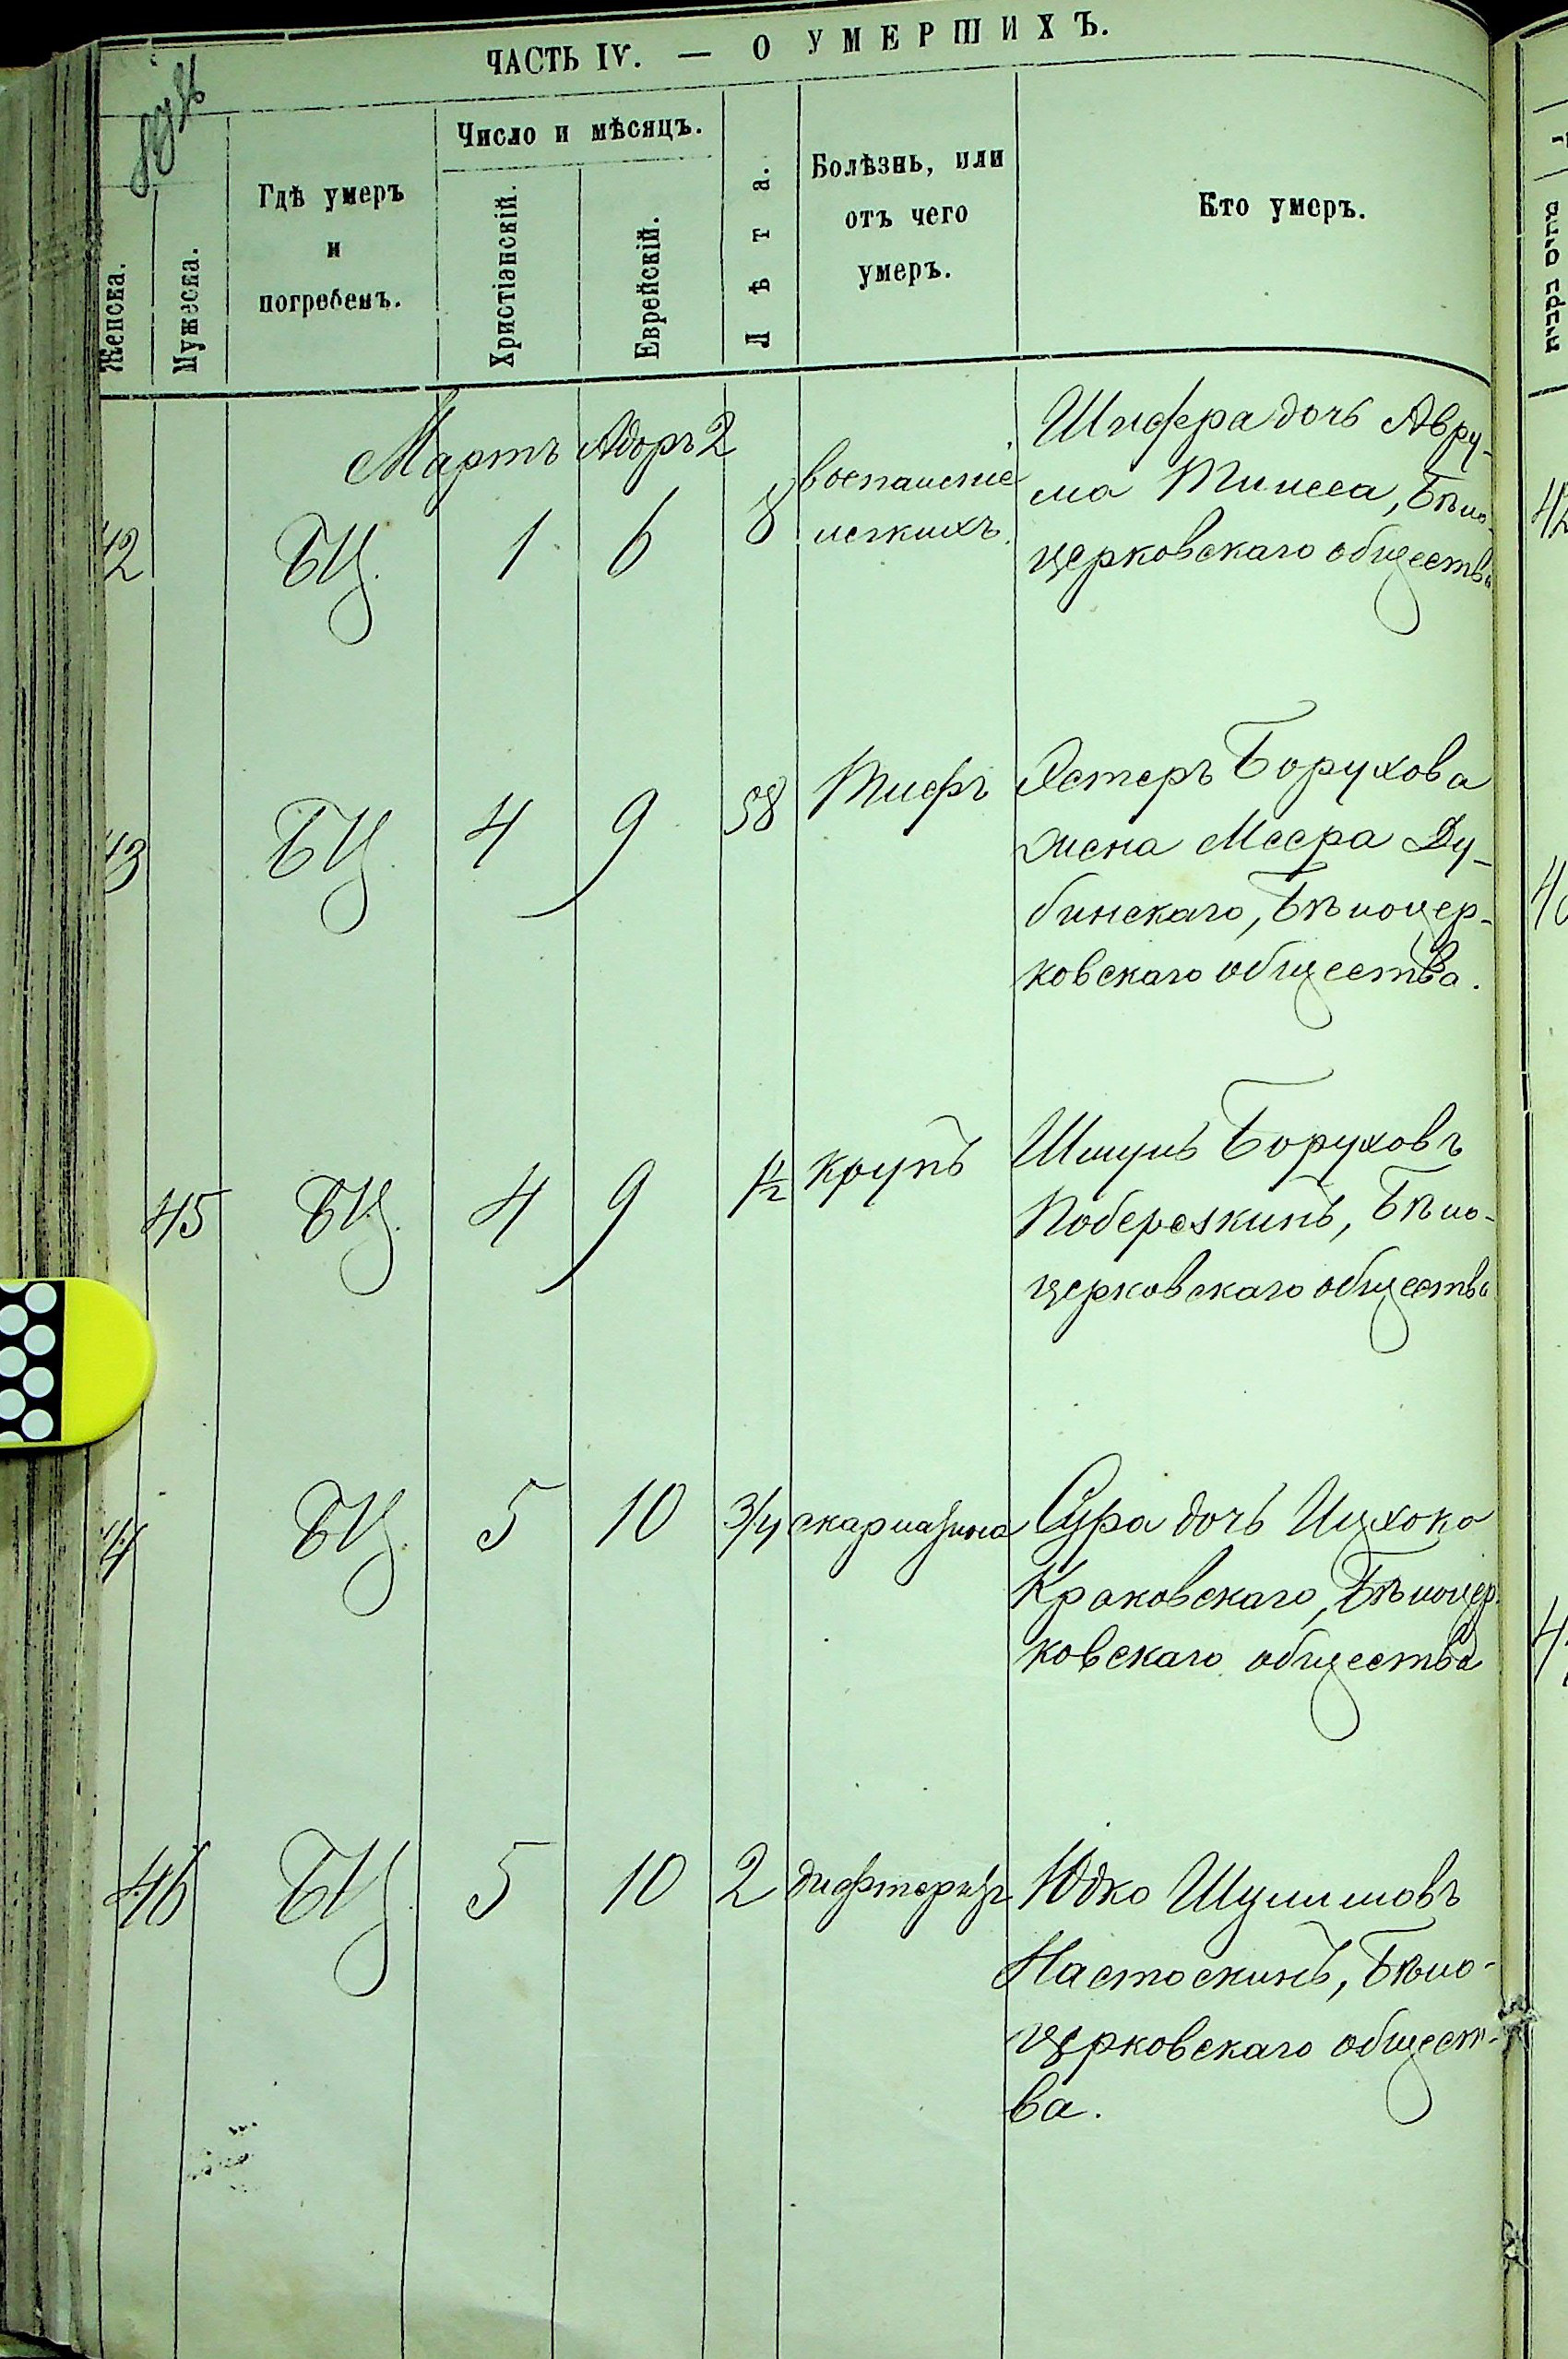 ЧАСТЬ IV. — О УМЕРШИХЪ.
Женска.
Мужеска.
Гдѣ умеръ
и
погребенъ.
Число и мѣсяцъ.
Христіанскій.
Еврейскій.
Лѣта.
Болѣзнь, или
отъ чего
умеръ.
Кто умеръ.
Мартъ Адоръ 2
42 БЦ. 1 6 8
воспаленіе
легкихъ.
Шифра дочь Авру-
ма Тилиса, Бѣло-
церковскаго общества
43 БЦ. 4 9 58 Тифъ
Эстеръ Борухова
жена Меера Ду-
бинскаго, Бѣлоцер-
ковскаго общества.
45 БЦ. 4 9 1½ крупъ
Шмуль Боруховъ
Поберезкинъ, Бѣло-
церковскаго общества
4 БЦ 5 10 3/4 скарлатина
Сура дочь Ицхока
Краковскаго, Бѣлоцер-
ковскаго общества
46 БЦ. 5 10 2 дифтеритъ
Юдко Шулимовъ
Настоскинъ, Бѣло-
церковскаго общест-
ва.